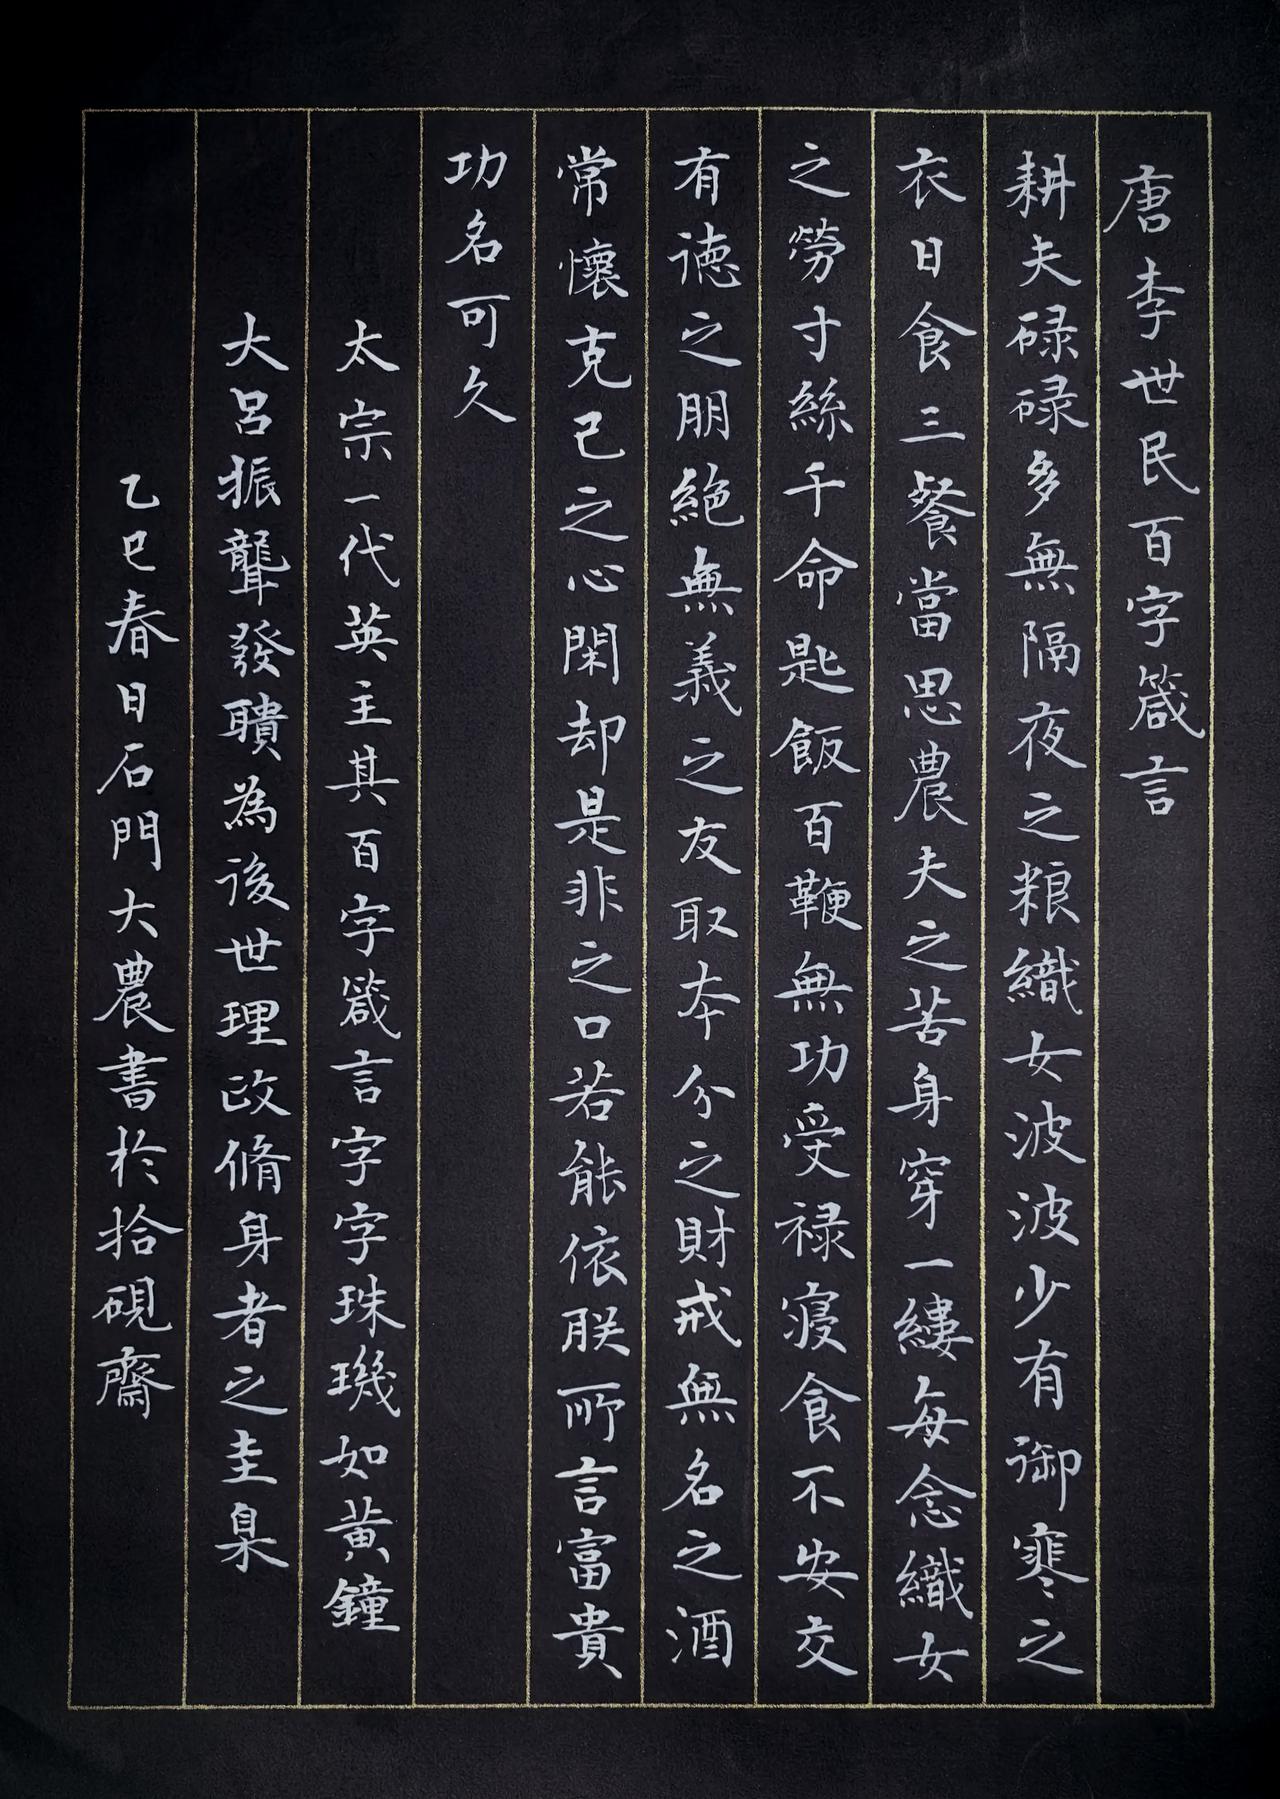 唐李世民百字箴言
耕夫碌碌多無隔夜之粮織女波波少有御寒之
衣日食三餐當思農夫之苦身穿一縷每念織女
之勞寸絲千命匙飯百鞭無功受禄寝食不安交
有徳之朋絶無義之友取本分之財戒無名之酒
常懷克己之心閑却是非之口若能依朕所言富貴
功名可久
太宗一代英主其百字箴言字字珠璣如黃鐘
大呂振聾發聵為後世理政脩身者之圭臬
乙巳春日石門大農書於拾硯齋